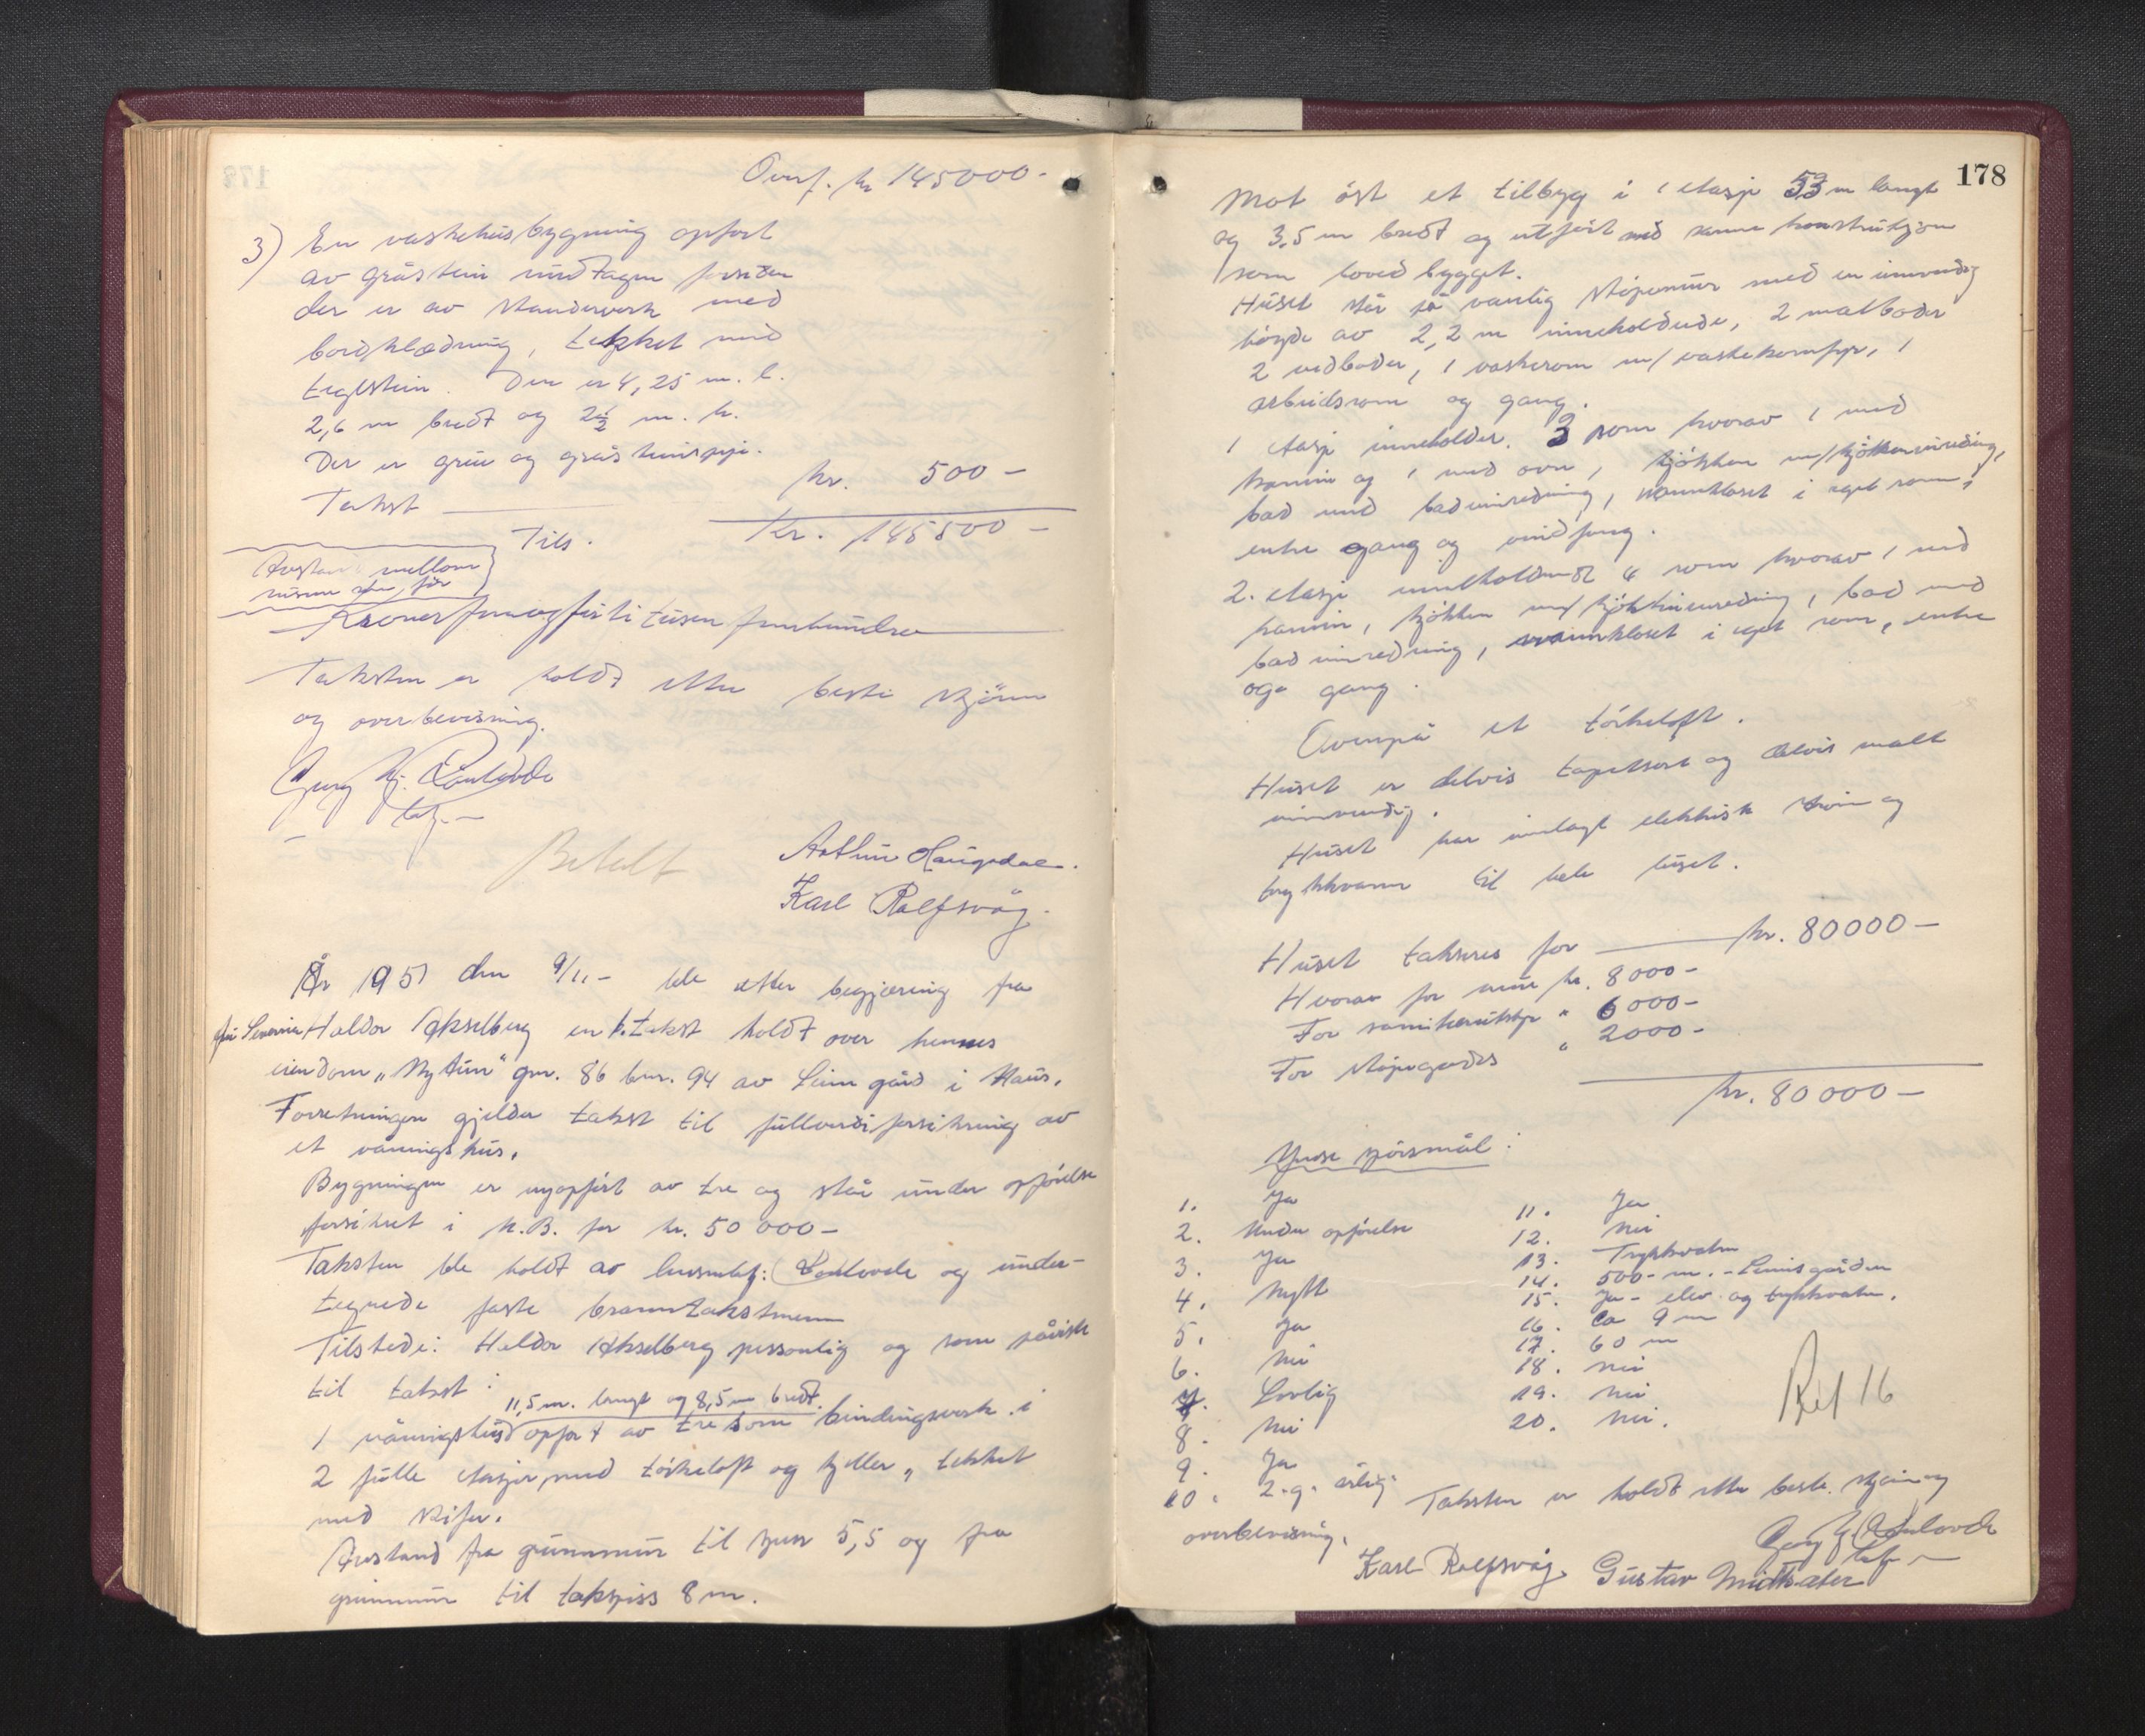 Overf. kr 145000.-
3) En vaskehusbygning opført
av gråstein undtagen forsiden
der er av standerverk med
bordklædning, tekket med
teglstein. Den er 4,25 m. l.
2,6 m bredt og 2½ m. h.
Der er grue og gråsteinspipe.
Takst kr. 500 -
Tils. Kr. 145500 -
Avstand mellom
husene
Kroner femogførti tusen femhundre
Taksten er holdt etter beste skjønn
og overbevisning.
Betalt
Arthur Haugsdal.
Karl Rolfsvåg.
År 1951 den 9/11 - ble etter begjæring fra
fru Severine Haldor Akselberg en b.takst holdt over hennes
eiendom "Nytun" gnr. 86 bnr. 94 av Leim gård i Haus.
Forretningen gjelder takst til fullverdiforsikring av
et våningshus.
Bygningen er nyopført av tre og står under opførelse
forsikret i N.B. for kr. 50 000 -
Taksten ble holdt av lensmbtj: og under-
tegnede faste branntakstmenn
Tilstede: Haldor Akselberg personlig og som påviste
til takst:
11,5 m. langt og 8,5 m bredt.
1 våningshus opført av tre som bindingsverk i
2 fulle etasjer med tørkeloft og kjeller, tekket
med skifer.
Avstand fra grunnmur til gesims 5,5 og fra
grunnmur til takspiss 8 m.
178
Mot øst et tilbygg i 1 etasje m langt
og 3,5 m bredt og utført med samme konstruksjon
som hovedbygget.
Huset står på vanlig støpemur med en innvendig
høyde av 2,2 m inneholdende, 2 matboder
2 vedboder, 1 vaskerom m/ vaskekomfyr, 1
arbeidsrom og gang.
1 etasje inneholder. 3 rom hvorav 1 med
kamin og 1 med ovn, kjøkken m/kjøkkeninredning,
bad med badeinredning, vannkloset i eget rom,
entre gang og vindfang.
2. etasje inneholdende 4 rom hvorav 1 med
kamin, kjøkken m/ kjøkkeninredning, bad med
badeinredning, vannkloset i eget rom, entre
og gang.
Ovenpå et tørkeloft.
Huset er delvis tapetsert og delvis malt
innvendig.
Huset har innlagt elektrisk strøm og
trykkvann til hele huset.
Huset takseres for kr. 80000 -
Hvorav for mur kr. 8000 -
For sanitærutstyr " 6000 -
For støpegods " 2000 -
kr. 80000 -
Yndse spørsmål:
1. Ja
2. Under opførelse
3. Ja
4. Nytt
5. Ja
6. Nei
7. Lovlig
8. Nei
9. Ja
10. 2.g. årlig
11. Ja
12. Nei
13. Trykkvatn
14. 500 - m. - Leimsgården
15. Ja - elev og trykkvatn.
16. Ca 9 m
17. 60 m
18. Nei
19. Nei
20. Nei.
Taksten er holdt etter beste skjønn og
overbevisning.
Karl Rolfsvåg. Gustav Midtsæter